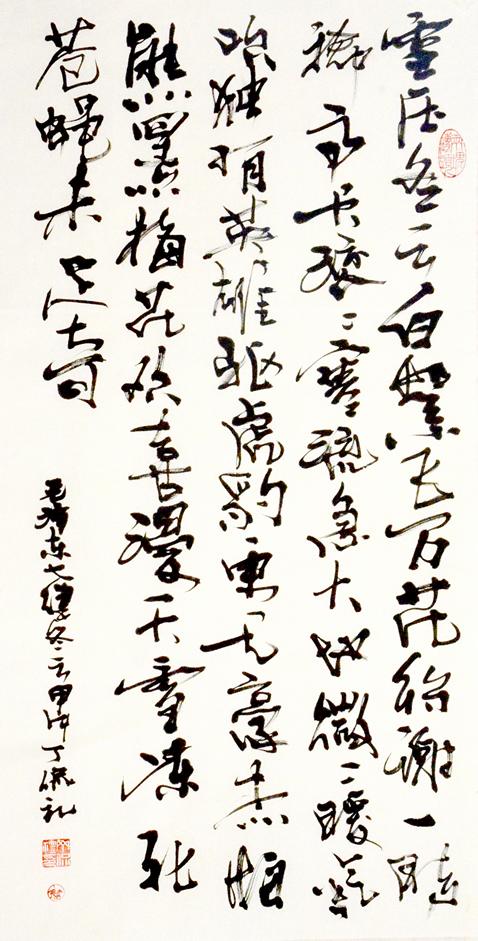 雪压冬云白絮飞万花纷谢一时
稀高天滚〻寒流急大地微〻暖气
吹独有英雄驱虎豹更无豪杰怕
熊罴梅花欢喜漫天雪冻死
苍蝇未足奇
毛泽东七律冬云甲申丁